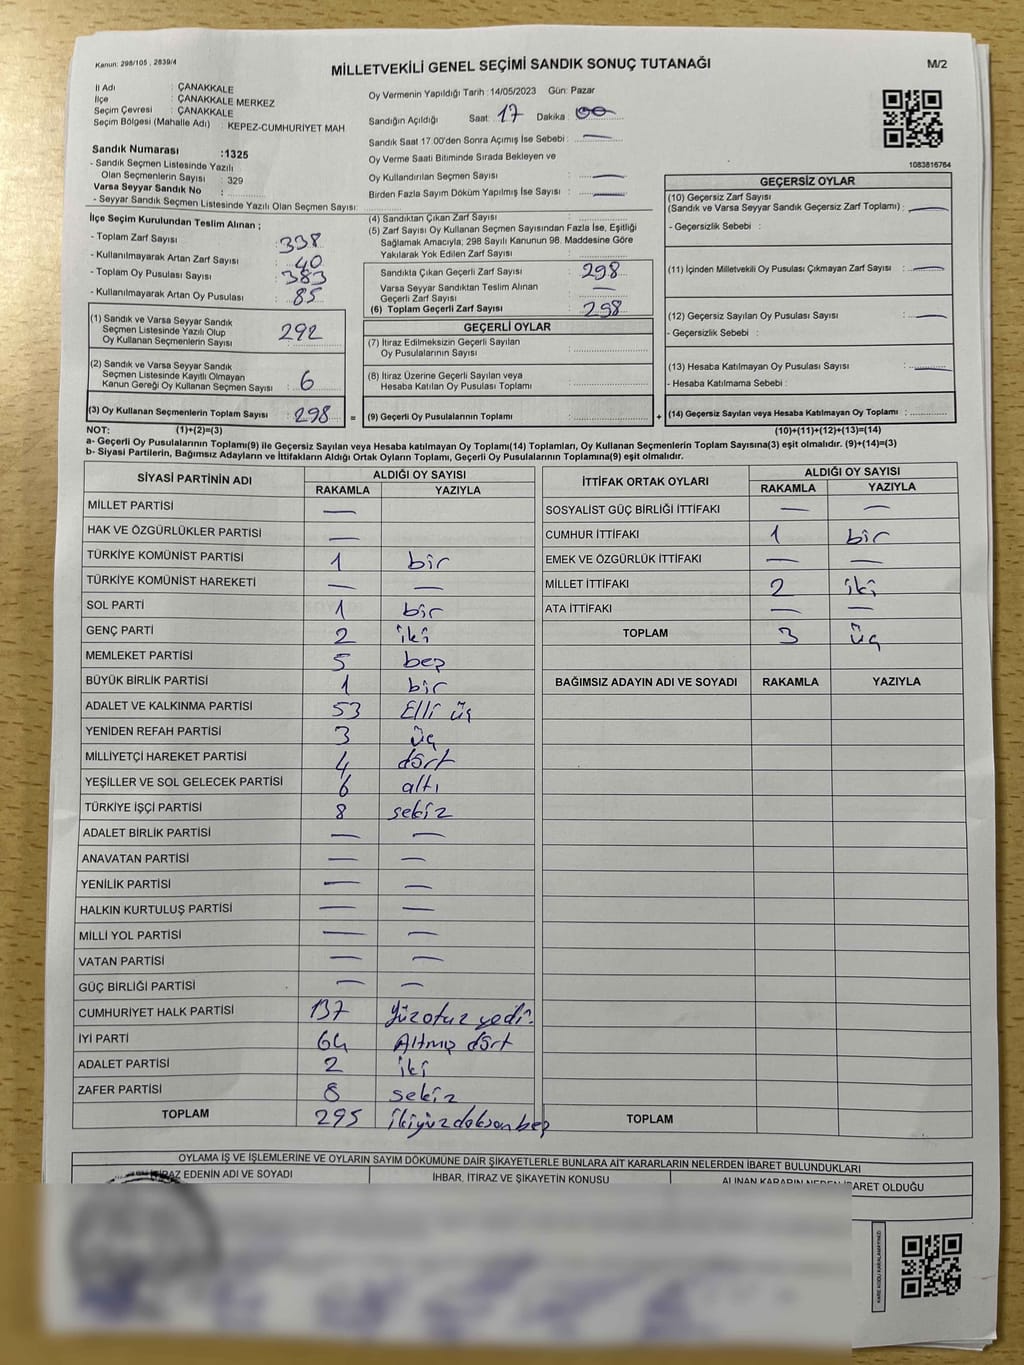 Kanun: 298/105 , 2839/4
MİLLETVEKİLİ GENEL SEÇİMİ SANDIK SONUÇ TUTANAĞI
M/2
İl Adı : ÇANAKKALE
İlçe : ÇANAKKALE MERKEZ
Seçim Çevresi : ÇANAKKALE
Seçim Bölgesi (Mahalle Adı) : KEPEZ-CUMHURİYET MAH
Sandık Numarası :1325
- Sandık Seçmen Listesinde Yazılı
Olan Seçmenlerin Sayısı : 329
Varsa Seyyar Sandık No :
- Seyyar Sandık Listesinde Yazılı Olan Seçmen Sayısı:
Oy Vermenin Yapıldığı Tarih : 14/05/2023 Gün: Pazar
Sandığın Açıldığı Saat : 17 Dakika : 00
Sandık Saat 17 00'den Sonra Açımış İse Sebebi : —
Oy Verme Saati Bitiminde Sırada Bekleyen ve
Oy Kullandırılan Seçmen Sayısı : —
Birden Fazla Sayım Döküm Yapılmış İse Sayısı : —
1083816764
İlçe Seçim Kurulundan Teslim Alınan ;
- Toplam Zarf Sayısı : 338
- Kullanılmayarak Artan Zarf Sayısı : 40
- Toplam Oy Pusulası Sayısı : 383
- Kullanılmayarak Artan Oy Pusulası : 85
(1) Sandık ve Varsa Seyyar Sandık
Seçmen Listesinde Yazılı Olup
Oy Kullanan Seçmenlerin Sayısı : 292
(2) Sandık ve Varsa Seyyar Sandık
Seçmen Listesinde Kayıtlı Olmayan
Kanun Gereği Oy Kullanan Seçmen Sayısı : 6
(3) Oy Kullanan Seçmenlerin Toplam Sayısı : 298 =
(4) Sandıktan Çıkan Zarf Sayısı :
(5) Zarf Sayısı Oy Kullanan Seçmen Sayısından Fazla İse, Eşitliği
Sağlamak Amacıyla, 298 Sayılı Kanunun 98. Maddesine Göre
Yakılarak Yok Edilen Zarf Sayısı :
Sandıkta Çıkan Geçerli Zarf Sayısı : 298
Varsa Seyyar Sandıktan Teslim Alınan
Geçerli Zarf Sayısı : —
(6) Toplam Geçerli Zarf Sayısı : 298
GEÇERLİ OYLAR
(7) İtiraz Edilmeksizin Geçerli Sayılan
Oy Pusulalarının Sayısı :
(8) İtiraz Üzerine Geçerli Sayılan veya
Hesaba Katılan Oy Pusulası Toplamı :
(9) Geçerli Oy Pusulalarının Toplamı : +
GEÇERSİZ OYLAR
(10) Geçersiz Zarf Sayısı
(Sandık ve Varsa Seyyar Sandık Geçersiz Zarf Toplamı) : —
- Geçersizlik Sebebi :
(11) İçinden Milletvekili Oy Pusulası Çıkmayan Zarf Sayısı : —
(12) Geçersiz Sayılan Oy Pusulası Sayısı : —
- Geçersizlik Sebebi :
(13) Hesaba Katılmayan Oy Pusulası Sayısı : —
- Hesaba Katılmama Sebebi :
(14) Geçersiz Sayılan veya Hesaba Katılmayan Oy Toplamı :
NOT: (1)+(2)=(3) (10)+(11)+(12)+(13)=(14)
a- Geçerli Oy Pusulalarının Toplamı(9) ile Geçersiz Sayılan veya Hesaba katılmayan Oy Toplamı(14) Toplamları, Oy Kullanan Seçmenlerin Toplam Sayısına(3) eşit olmalıdır. (9)+(14)=(3)
b- Siyasi Partilerin, Bağımsız Adayların ve İttifakların Aldığı Ortak Oyların Toplamı, Geçerli Oy Pusulalarının Toplamına(9) eşit olmalıdır.
SİYASİ PARTİNİN ADI ALDIĞI OY SAYISI
RAKAMLA YAZIYLA
MİLLET PARTİSİ —
HAK VE ÖZGÜRLÜKLER PARTİSİ —
TÜRKİYE KOMÜNİST PARTİSİ 1 bir
TÜRKİYE KOMÜNİST HAREKETİ — —
SOL PARTİ 1 bir
GENÇ PARTİ 2 iki
MEMLEKET PARTİSİ 5 beş
BÜYÜK BİRLİK PARTİSİ 1 bir
ADALET VE KALKINMA PARTİSİ 53 Elli üç
YENİDEN REFAH PARTİSİ 3 üç
MİLLİYETÇİ HAREKET PARTİSİ 4 dört
YEŞİLLER VE SOL GELECEK PARTİSİ 6 altı
TÜRKİYE İŞÇİ PARTİSİ 8 sekiz
ADALET BİRLİK PARTİSİ — —
ANAVATAN PARTİSİ — —
YENİLİK PARTİSİ — —
HALKIN KURTULUŞ PARTİSİ — —
MİLLİ YOL PARTİSİ — —
VATAN PARTİSİ — —
GÜÇ BİRLİĞİ PARTİSİ — —
CUMHURİYET HALK PARTİSİ 137 Yüzotuz yedi
İYİ PARTİ 64 Altmış dört
ADALET PARTİSİ 2 iki
ZAFER PARTİSİ 8 sekiz
TOPLAM 295 ikiyüzdoksanbeş
İTTİFAK ORTAK OYLARI ALDIĞI OY SAYISI
RAKAMLA YAZIYLA
SOSYALİST GÜÇ BİRLİĞİ İTTİFAKI — —
CUMHUR İTTİFAKI 1 bir
EMEK VE ÖZGÜRLÜK İTTİFAKI — —
MİLLET İTTİFAKI 2 iki
ATA İTTİFAKI — —
TOPLAM 3 üç
BAĞIMSIZ ADAYIN ADI VE SOYADI RAKAMLA YAZIYLA
TOPLAM
OYLAMA İŞ VE İŞLEMLERİNE VE OYLARIN SAYIM DÖKÜMÜNE DAİR ŞİKAYETLERLE BUNLARA AİT KARARLARIN NELERDEN İBARET BULUNDUKLARI
İTİRAZ EDENİN ADI VE SOYADI İHBAR, İTİRAZ VE ŞİKAYETİN KONUSU ALINAN KARARIN NEDEN İBARET OLDUĞU
KARE KODU KARALAMAYINIZ!